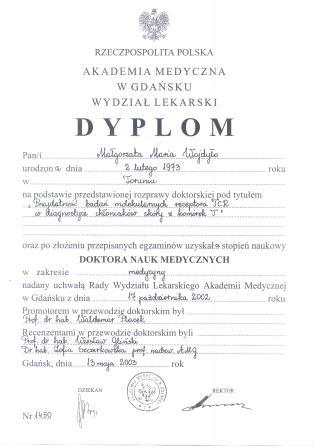 RZECZPOSPOLITA POLSKA
AKADEMIA MEDYCZNA
W GDAŃSKU
WYDZIAŁ LEKARSKI
DYPLOM
Pan/i Małgorzata Maria Wojdyło
urodzona dnia 2 lutego 1973 roku
w Toruniu
na podstawie przedstawionej rozprawy doktorskiej pod tytułem
„Przydatność badań molekularnych receptora TCR
w diagnostyce chłoniaków skóry z komórek T."
oraz po złożeniu przepisanych egzaminów uzyskała stopień naukowy
DOKTORA NAUK MEDYCZNYCH
w zakresie medycyny
nadany uchwałą Rady Wydziału Lekarskiego Akademii Medycznej
w Gdańsku z dnia 17 października 2002 roku
Promotorem w przewodzie doktorskim był
Prof. dr hab. Waldemar Placek
Recenzentami w przewodzie doktorskim byli
Prof. dr hab. Wiesław Gliński
Dr hab. Zofia Szczerkowska prof. nadzw. AMG
Gdańsk, dnia 13 maja 2003 rok
DZIEKAN
REKTOR
Nr 1450